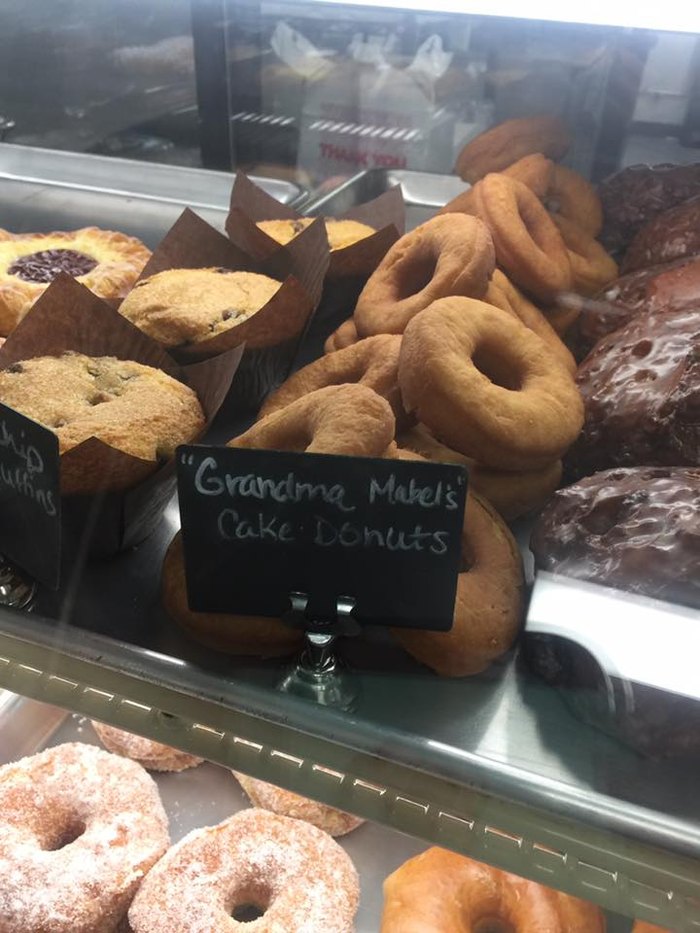 THANK YOU
hip
uffins
"Grandma Mabel's"
Cake Donuts